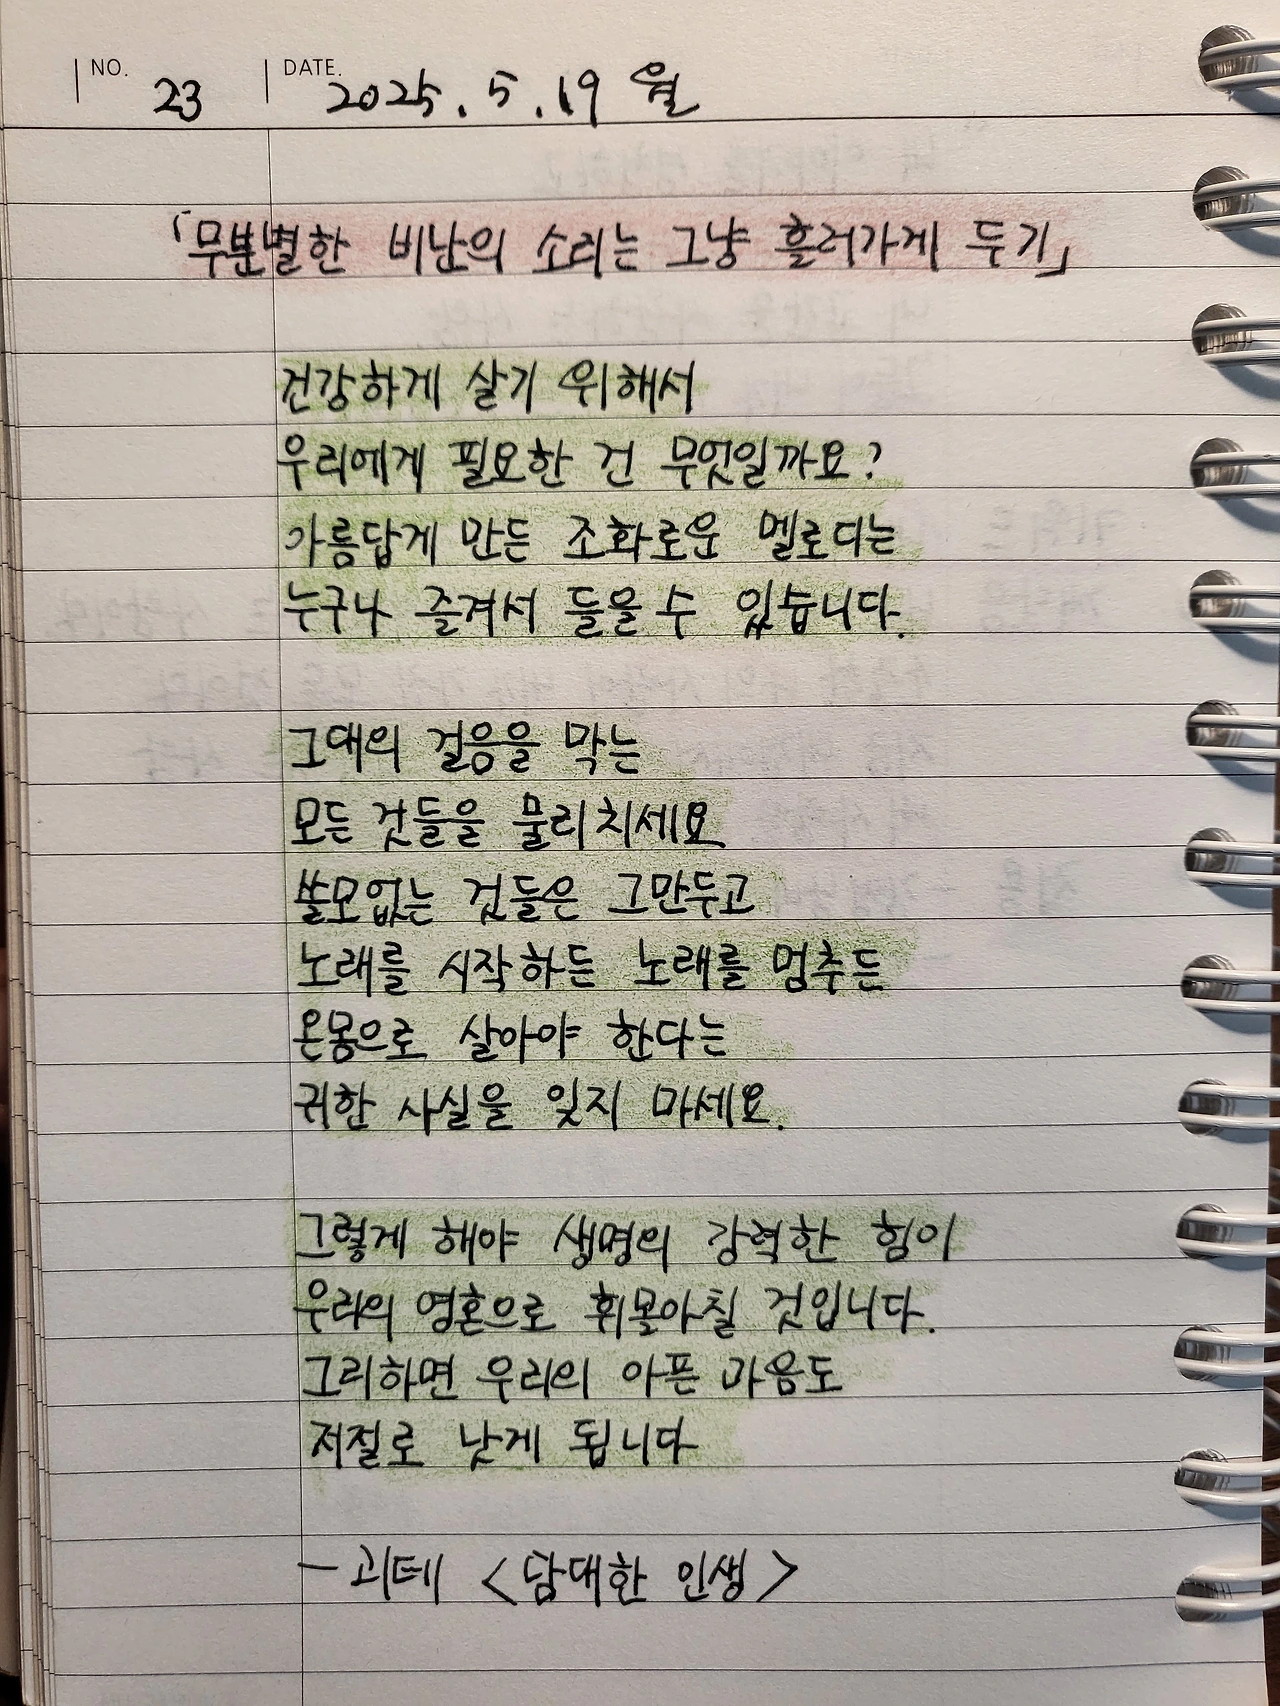 NO. 23 DATE. 2025. 5. 19 월
「무분별한 비난의 소리는 그냥 흘러가게 두기」
건강하게 살기 위해서
우리에게 필요한 건 무엇일까요?
아름답게 만든 조화로운 멜로디는
누구나 즐겨서 들을 수 있습니다.
그대의 걸음을 막는
모든 것들을 물리치세요
쓸모없는 것들은 그만두고
노래를 시작하든 노래를 멈추든
온몸으로 살아야 한다는
귀한 사실을 잊지 마세요.
그렇게 해야 생명의 강력한 힘이
우리의 영혼으로 휘몰아칠 것입니다.
그리하면 우리의 아픈 마음도
저절로 낫게 됩니다
- 괴테 <담대한 인생>